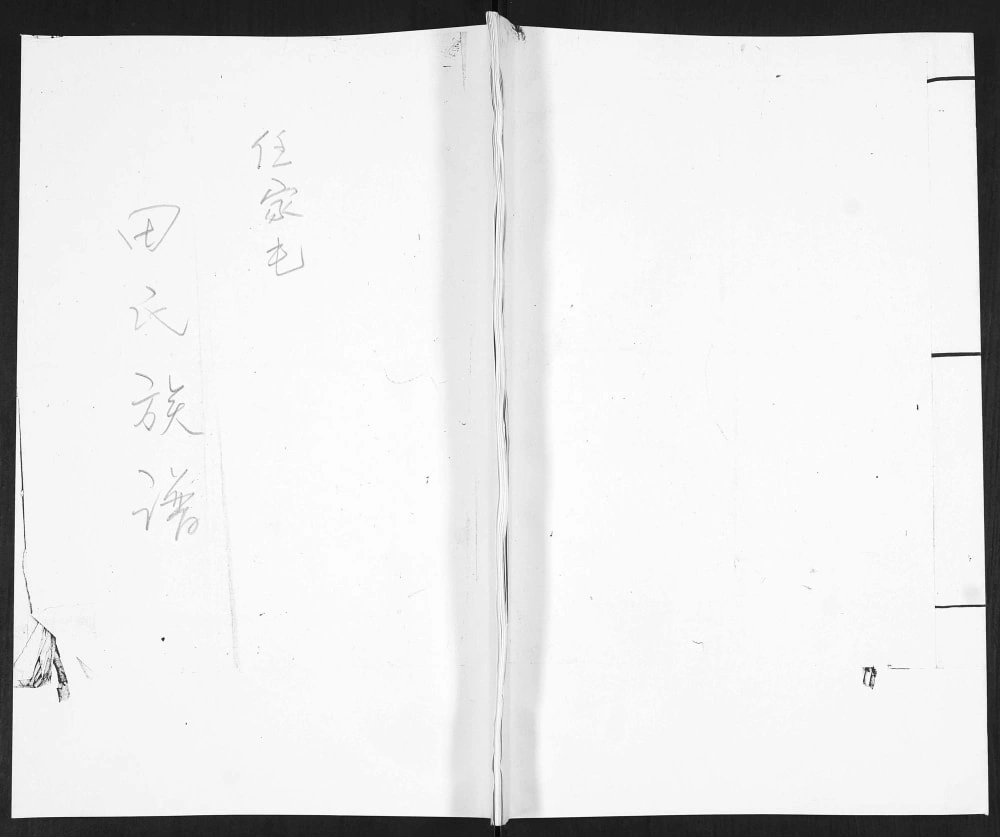 任家屯
田氏族谱